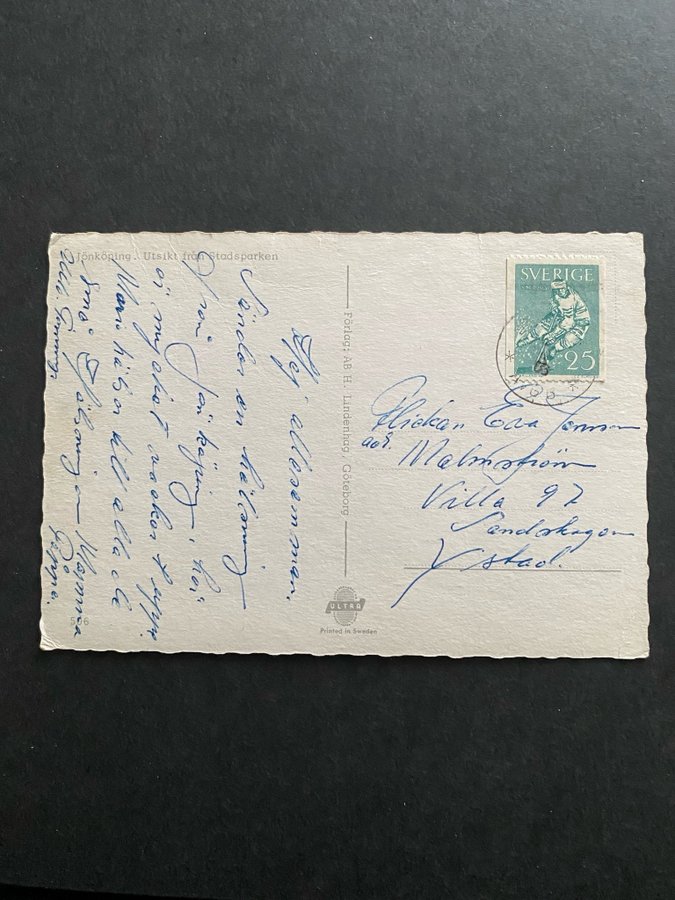 Jönköping. Utsikt från Stadsparken
Hej allesamman.
Sänder en hälsning
från Jönköping, här
är mycket vackert uppe
Marie hälsar till alla de
små Hälsning Mamma
o Pappa.
Förlag: AB H. Lindenhag, Göteborg
ULTRA
Printed in Sweden
516
SVERIGE
25
Flickan Eva Jonsson
adr. Malmström
Villa 97
Sandskogen
Ystad.